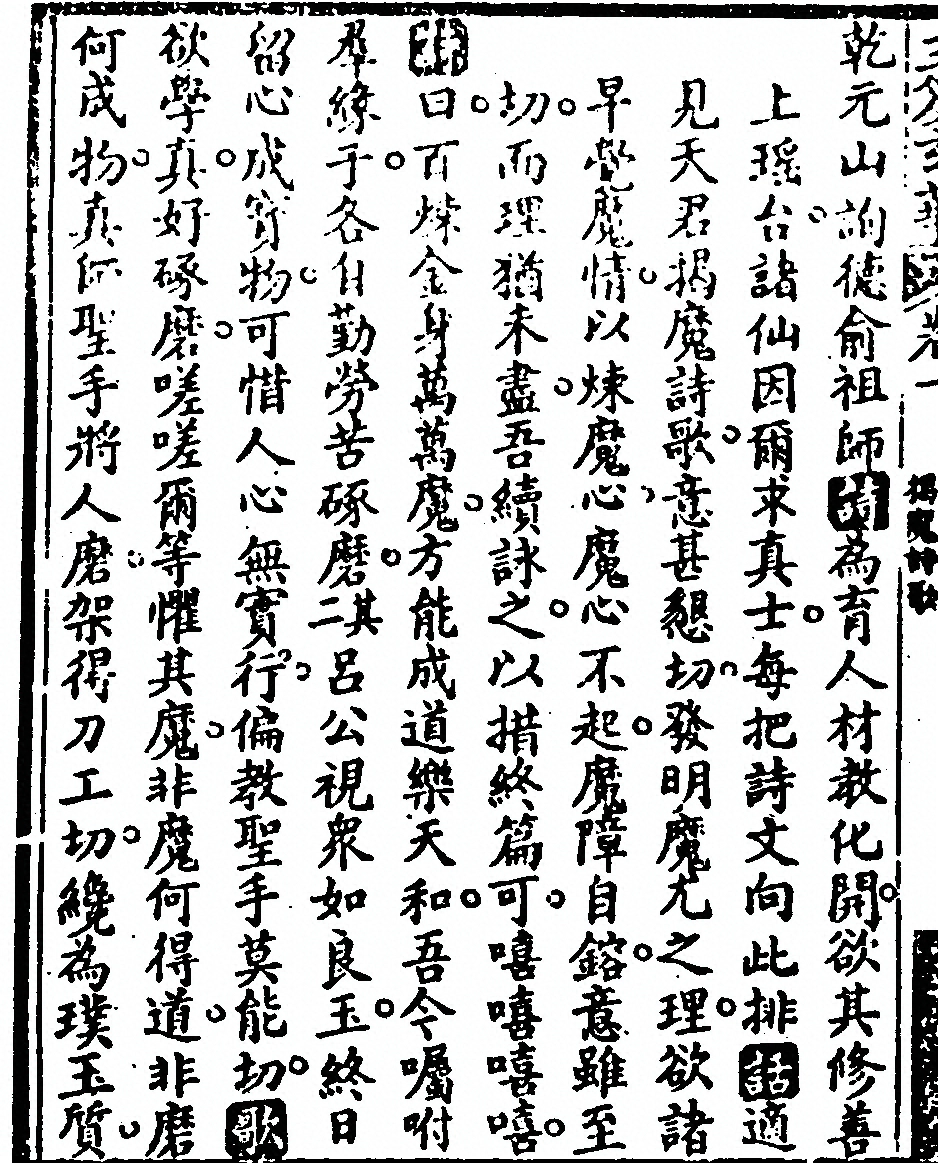 乾元山詢德俞祖師詩為育人材教化開欲其修善
上瑤台諸仙因爾求真士每把詩文向此排話適
見天君揭魔詩歌意甚懇切發明魔尤之理欲諸
早覺魔情以煉魔心魔心不起魔障自鎔意雖至
切而理猶未盡吾續詠之以措終篇可嘻嘻嘻嘻
曰百煉金身萬萬魔方能成道樂天和吾今囑咐
羣緣于各自勤勞苦琢磨其二呂公視眾如良玉終日
留心成寶物可惜人心無實行偏教聖手莫能切歌
欲學真好琢磨嗟嗟爾等懼其魔非魔何得道非磨
何成物真師聖手將人磨架得刀工切纔為璞玉質
揭魔詩歌